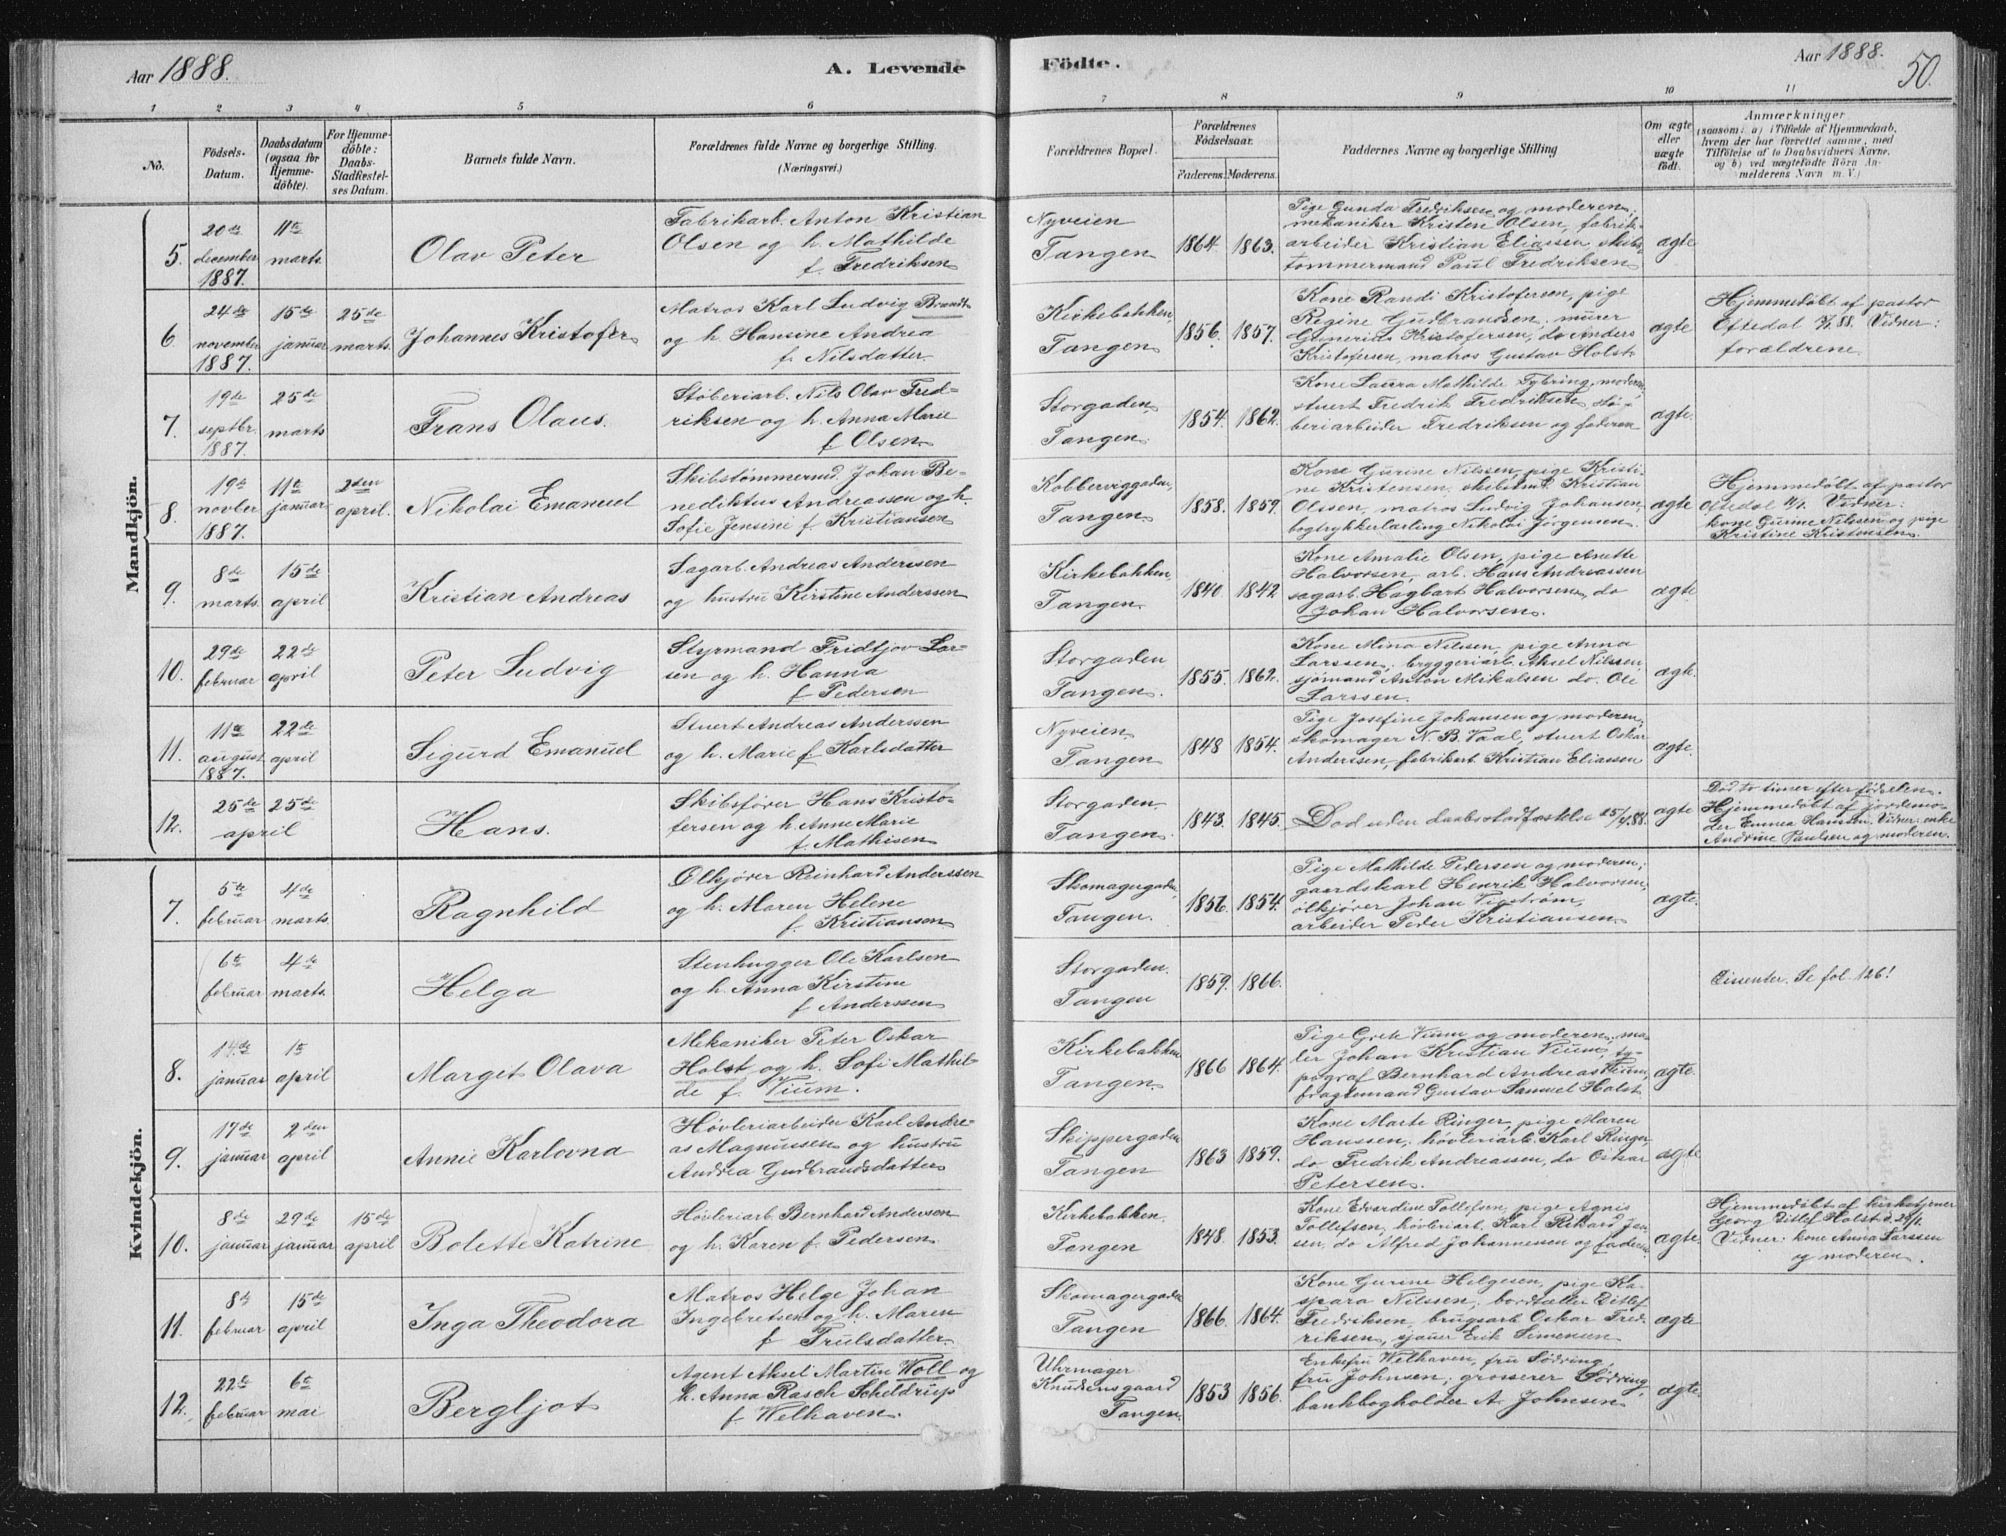 Aar 1888.
A. Levende
Födte.
Aar 1888.
50.
1 2 3 4 5 6 7 8 9 10 11
No.
Födsels-
Datum.
Daabsdatum
(ogsaa for
Hjemme-
döbte).
For Hjemme-
döbte:
Daabs-
Stadfæstel-
ses Datum.
Barnets fulde Navn.
Forældrenes fulde Navne og borgerlige Stilling.
(Næringsvei.)
Forældrenes Bopæl.
Forældrenes
Födselsaar.
Faderens. Moderens.
Faddernes Navne og borgerlige Stilling
Om ægte
eller
uægte
födt.
Anmærkninger
(saasom: a) i Tilfælde af Hjemmedaab,
hvem der har forrettet samme, med
Tilföielse af to Daabsvidners Navne,
og b) ved uægtefödte Börn An-
melderens Navn m. V.)
Mandkjön.
5.
20de
december
1887.
11te
marts
Olav Peter
Fabrikarb. Anton Kristian
Olsen og h. Mathilde
f. Fredriksen
Nyveien
Tangen
1864 1863.
Pige Gunda Fredriksen og moderen,
mekaniker Kristen Olsen, fabrik-
arbeider Kristian Eliassen, skibs-
tømmermand Paul Fredriksen
ægte
6
24de
november
1887.
15de
januar
25de
marts.
Johannes Kristofer
Matros Karl Ludvig Brandt
og h. Hansine Andrea
f. Nilsdatter.
Kirkebakken,
Tangen
1856. 1857.
Kone Randi Kristofersen, pige
Regine Gudbrandsen, murer
Gunerius Kristofersen, do Anders
Kristofersen, matros Gustav Holst
ægte
Hjemmedøbt af pastor
Oftedal 15/1 88. Vidner:
forældrene.
7.
19de
septbr.
1887.
25de
marts
Frans Olaus.
Støberiarb. Nils Olav Fred-
riksen og h. Anna Marie
f. Olsen
Storgaden,
Tangen.
1854. 1862.
Kone Laura Mathilde Tybring, moderen,
stuert Fredrik Fredriksen stø-
beriarbeider Fredriksen og faderen
ægte.
8.
19de
novber
1887.
11te
januar
2den
april.
Nikolai Emanuel
Skibstømmermd. Johan Be-
nediktus Andreassen og h.
Sofie Jensine f. Kristiansen
Kobberviggaden,
Tangen
1858. 1859.
Kone Gurine Nilssen, pige Kristi-
ne Kristensen, skibstmd. Kristian
Olsen, matros Ludvig Johansen,
bogtrykkerlærling Nikolai Jørgensen.
ægte
Hjemmedøbt af pastor
Oftedal 11/1. Vidner:
kone Gurine Nilssen og pige
Kristine Kristensen.
9.
8de
marts.
15de
april
Kristian Andreas
Sagarb. Andreas Anderssen
og hustru Kirstine Anderssen
Kirkebakken,
Tangen
1840 1842
Kone Amalie Olsen, pige Anette
Halvorsen, arb. Hans Andreassen
sagarb. Hagbart Halvorsen, do
Johan Halvorsen.
ægte
10.
29de
februar
22de
april
Peter Ludvig
Styrmand Fridtjov Lar-
sen og h. Hanna
f. Pedersen
Storgaden
Tangen.
1855. 1862.
Kone Mina Nilsen, pige Anna
Larssen, bryggeriarb. Aksel Nilssen,
sjømand Anton Mikalsen do. Ole
Larssen.
ægte.
11.
11te
august
1887.
22de
april
Sigurd Emanuel
Stuert Andreas Anderssen
og h. Marie f. Karlsdatter
Nyveien.
Tangen
1848 1854.
Pige Josefine Johansen og moderen,
skomager N. B. Vaal, stuert Oskar
Anderssen, fabrikarb. Kristian Eliassen
ægte.
12.
25de
april
25de
Hans.
Skibsfører Hans Kristo-
fersen og h. Anne Marie
f. Mathisen
Storgaden.
Tangen.
1843. 1845.
Død uden daabsstadfæstelse 25/4 88.
ægte
Død to timer efter fødselen.
Hjemmedøbt af jordemo-
der Emma Hanssen. Vidner: enke
Andrine Paulsen og moderen.
Kvindekjön.
7.
5te
februar
4de
marts.
Ragnhild
Ølkjører Reinhard Anderssen
og h. Maren Helene
f. Kristiansen
Skomagergaden,
Tangen.
1856. 1854.
Pige Mathilde Pedersen og moderen,
gaardskarl Henrik Halvorsen,
ølkjører Johan Vigstrøm,
arbeider Peder Kristiansen.
ægte.
6te
februar
4de
marts.
Helga
Stenhugger Ole Karlsen
og h. Anna Kirstine
f. Anderssen
Storgaden.
Tangen
1859. 1866.
Dissenter. Se fol. 126!
8.
14de
januar
1ste
april
Marget Olava
Mekaniker Peter Oskar
Holst og h. Sofi Mathil-
de f. Vium.
Kirkebakken
Tangen
1866 1864.
Pige Grete Vium og moderen, ma-
ler Johan Kristian Vium, ty-
pograf Bernhard Andreas Vium,
fragtemand Gustav Samuel Holst
ægte.
9.
17de
januar
2den
april
Annie Karlovna
Høvleriarbeider Karl Andre-
as Magnussen og hustru
Andrea Gudbrandsdatter
Skippergaden
Tangen
1863 1859.
Kone Marte Ringer, pige Maren
Hanssen, høvleriarb. Karl Ringer
do Fredrik Andreassen, do Oskar
Petersen.
ægte
10.
8de
januar
29de
januar
15de
april
Bolette Katrine
Høvleriarb. Bernhard Andersen
og h. Karen f. Pedersen.
Kirkebakken.
Tangen
1848. 1853.
Kone Edvardine Tollefsen, pige Agnis
Tollefsen, høvleriarb. Karl Rikard Jen-
sen, do Alfred Johannessen og faderen
ægte.
Hjemmedøbt af kirketjener
Georg Ditlef Holst d. 29/1.
Vidner: kone Anna Larssen
og moderen.
11.
8de
februar
15de
april
Inga Theodora
Matros Helge Johan
Ingebretsen og h. Maren
f. Trulsdatter
Skomagergaden
Tangen
1866. 1864.
Kone Gurine Helgesen, pige Ka-
spara Nilssen, bordtæller Ditlef
Fredriksen, brugsarb. Oskar Fred-
riksen, sjauer Erik Simensen
ægte
12.
22de
februar
6te
mai
Bergljot
Agent Aksel Martin Woll og
h. Anna Rasch Scheldrup
f. Welhaven.
Uhrmager
Knudsensgaard
Tangen.
1853 1856.
Enkefru Welhaven, fru Sødring,
fru Johnsen, grosserer Sødring,
bankbogholder A. Johnsen
ægte.